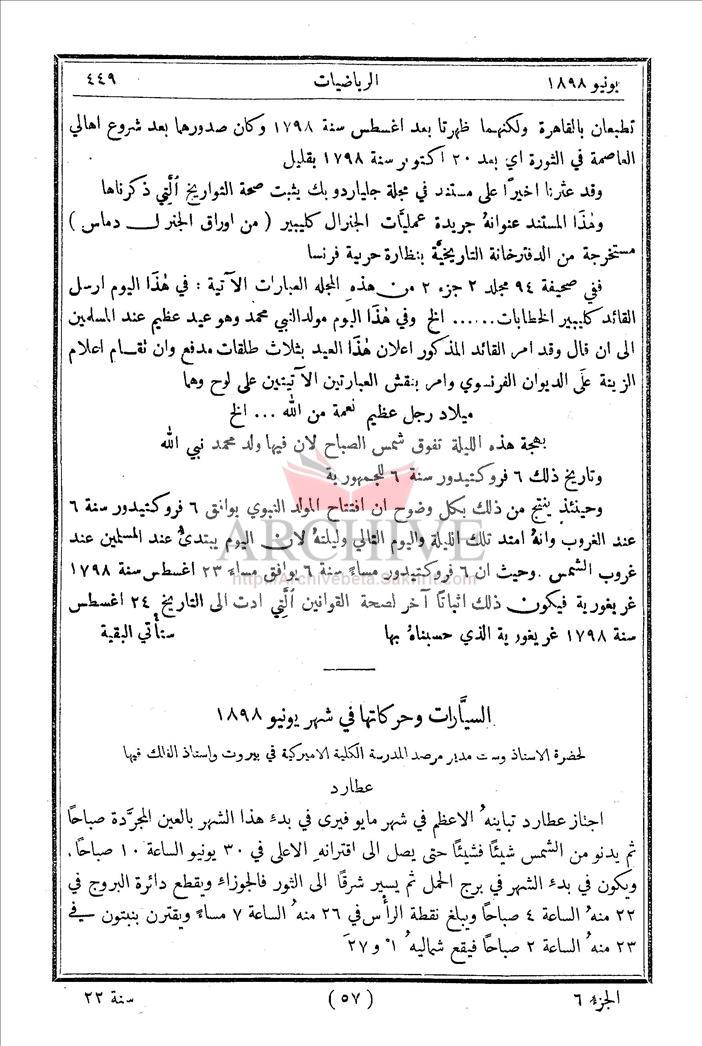 يونيو ١٨٩٨ الرياضيات ٤٤٩
تطبعان بالقاهرة ولكنهما ظهرتا بعد اغسطس سنة ١٧٩٨ وكان صدورهما بعد شروع اهالي
العاصمة في الثورة اي بعد ٢٠ اكتوبر سنة ١٧٩٨ بقليل
وقد عثرنا اخيرًا على مستند في مجلة جلياردو بك يثبت صحة التواريخ الَّتي ذكرناها
وهٰذَا المستند عنوانهُ جريدة عمليَّات الجنرال كليبير ( من اوراق الجنرل دماس )
مستخرجة من الدفترخانة التاريخيَّة بنظارة حربية فرنسا
ففي صحيفة ٩٤ مجلد ٢ جزء ٢ من هذه المجله العبارات الآتية : في هٰذَا اليوم ارسل
القائد كليبير الخطابات...... الخ وفي هٰذَا اليوم مولد النبي محمد وهو عيد عظيم عند المسلمين
الى ان قال وقد امر القائد المذكور اعلان هٰذَا العيد بثلاث طلقات مدفع وان تقام اعلام
الزينة علَى الديوان الفرنسوي وامر بنقش العبارتين الآتيتين على لوح وهما
ميلاد رجل عظيم نعمة من الله ... الخ
بهجة هذه الليلة تفوق شمس الصباح لان فيها ولد محمد نبي الله
وتاريخ ذلك ٦ فروكتيدور سنة ٦ للجمهورية
وحينئذٍ ينتج من ذلك بكل وضوح ان افتتاح المولد النبوي يوافق ٦ فروكتيدور سنة ٦
عند الغروب وانهُ امتد تلك الليلة واليوم التالي وليلتهُ لان اليوم يبتدئُ عند المسلمين عند
غروب الشمس . وحيث ان ٦ فروكتيدور مساءً سنة ٦ يوافق مساء ٢٣ اغسطس سنة ١٧٩٨
غريغورية فيكون ذلك اثباتًا آخر لصحة القوانين الَّتِي ادت الى التاريخ ٢٤ اغسطس
سنة ١٧٩٨ غريغورية الذي حسبناهُ بها ستأتي البقية
ARCHIVE
http://Archivebeta.Sakhrit.com
السيَّارات وحركاتها في شهر يونيو ١٨٩٨
لحضرة الاستاذ وست مدير مرصد المدرسة الكلية الاميركية في بيروت واستاذ الفلك فيها
عطارد
اجتاز عطارد تباينهُ الاعظم في شهر مايو فيرى في بدء هذا الشهر بالعين المجرَّدة صباحًا
ثم يدنو من الشمس شيئًا فشيئًا حتى يصل الى اقترانهِ الاعلى في ٣٠ يونيو الساعة ١٠ صباحًا .
ويكون في بدء الشهر في برج الحمل ثم يسير شرقًا الى الثور فالجوزاء ويقطع دائرة البروج في
٢٢ منهُ الساعة ٤ صباحًا ويبلغ نقطة الرأس في ٢٦ منهُ الساعة ٧ مساءً ويقترن بنبتون في
٢٣ منهُ الساعة ٢ صباحًا فيقع شماليهُ ١° و٢٧َ
الجزء ٦ (٥٧) سنة ٢٢